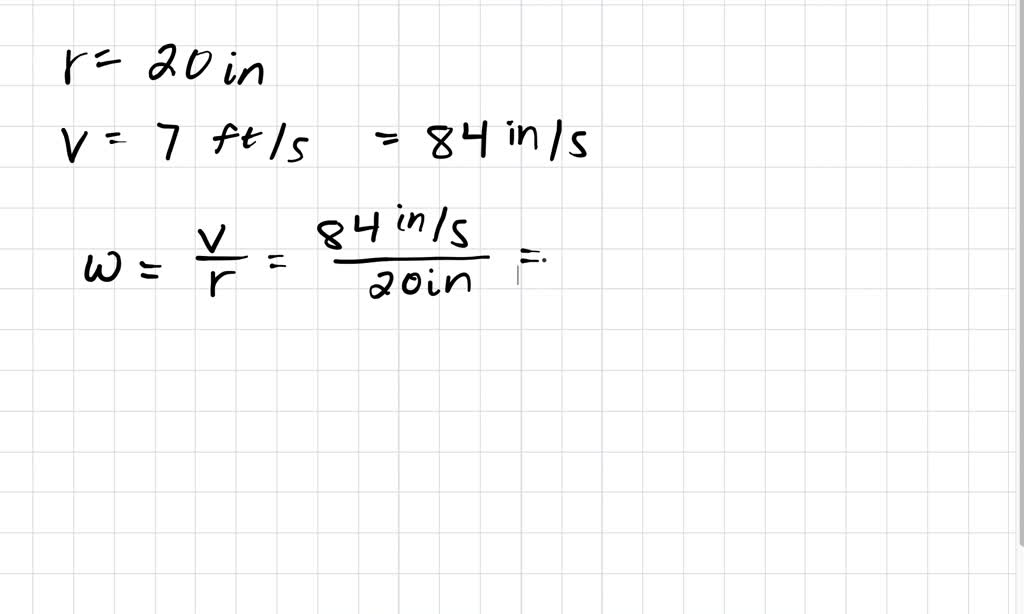 r = 20 in
v = 7 ft/s = 84 in/s
w = v/r = 84 in/s / 20 in =